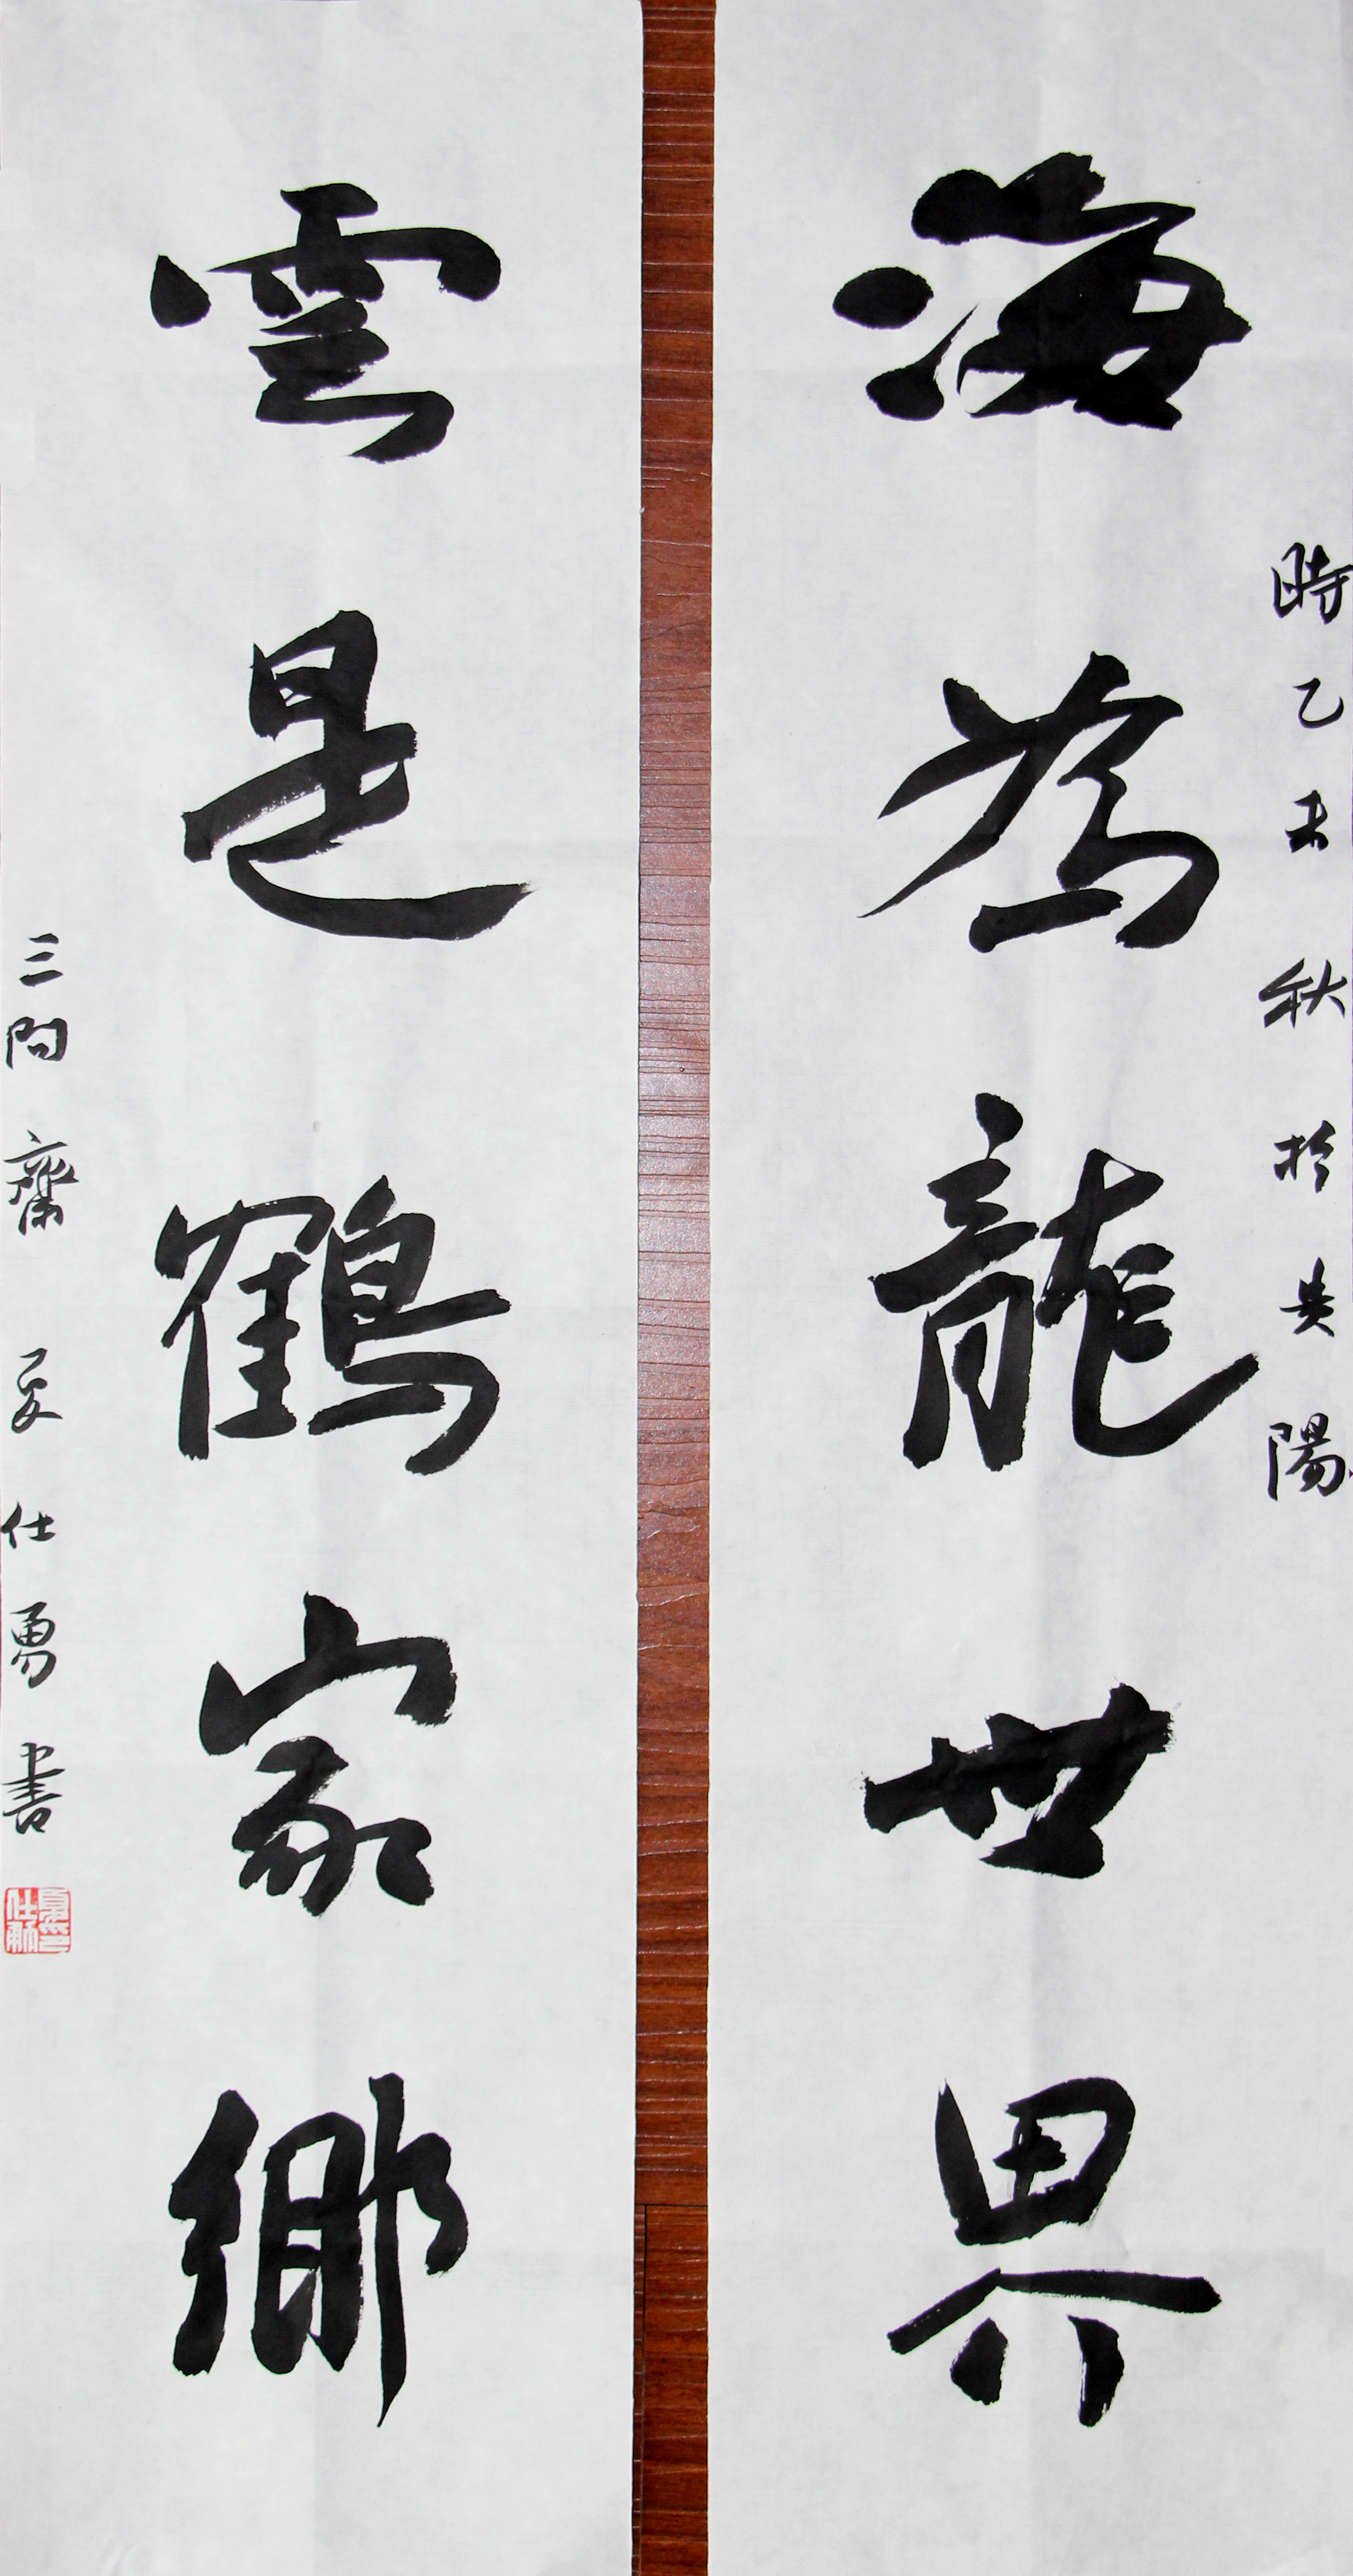 時乙未秋於貴陽
海為龍世界
雲是鶴家鄉
三問齋夏仕勇書